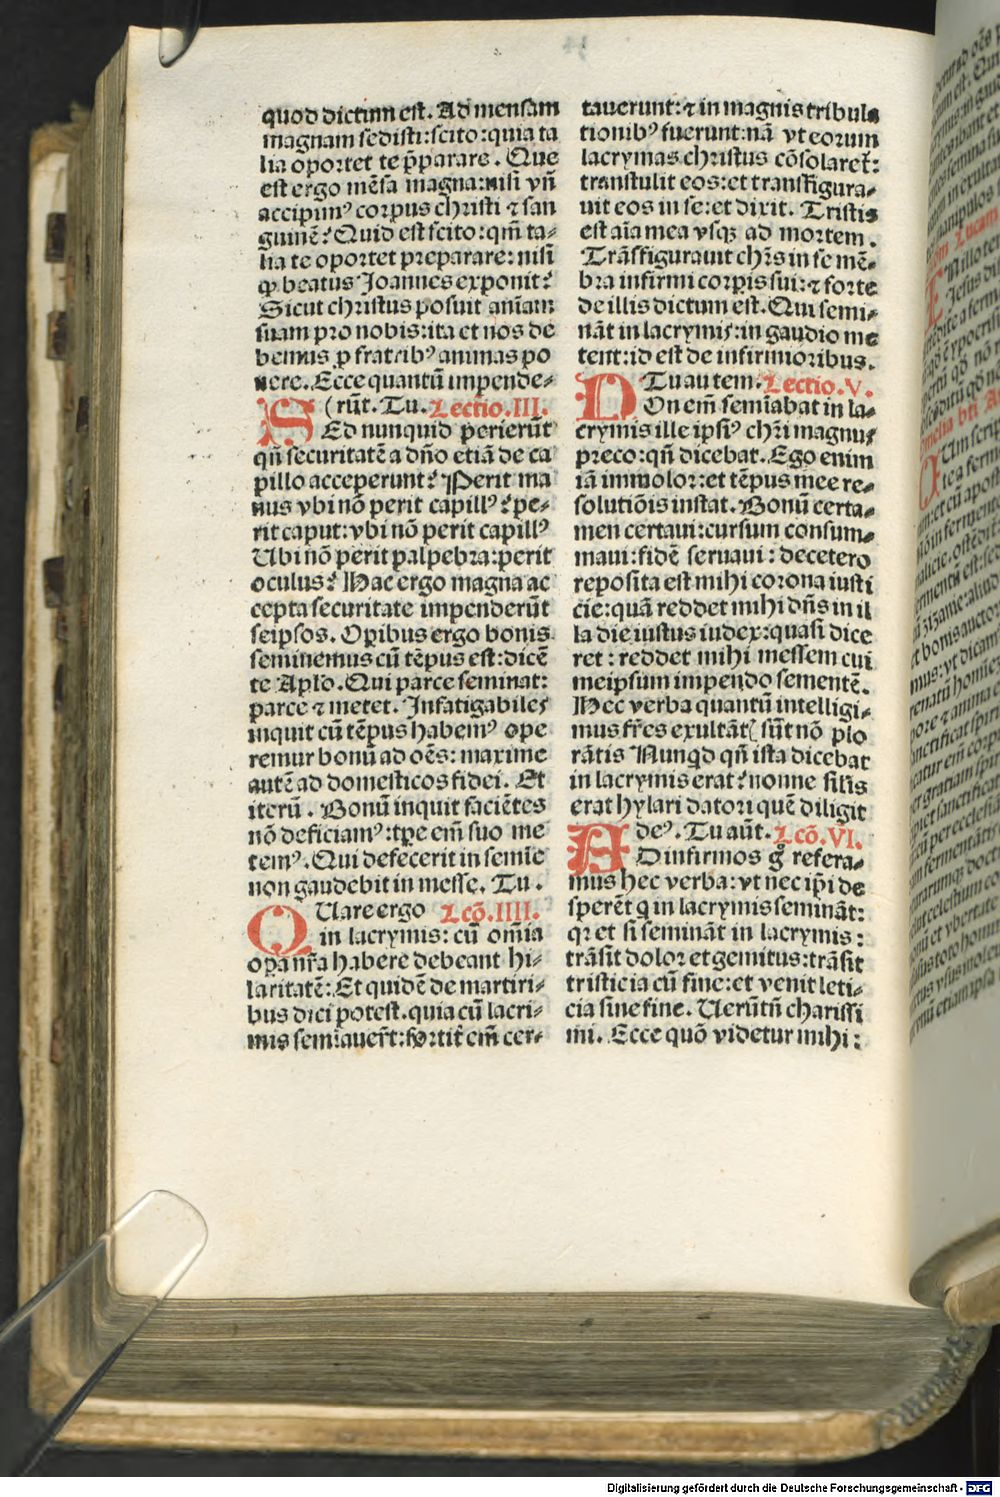 quod dictum est. Ad mensam
magnam sedisti:scito:quia ta
lia oportet te p̄parare. Que
est ergo mēsa magna:nisi vñ
accipimꝰ corpus christi ⁊ san
guinē? Quid est scito:qm̄ ta-
lia te oportet preparare: nisi
ꝙ beatus Joannes exponit?
Sicut christus posuit animam
suam pro nobis:ita et nos de
bemus ꝓ fratribꝰ animas po
nere. Ecce quantū impende-
(rūt. Tu. Lectio. III.
SEd nunquid perierūt
qñ securitatē a dño etiā de ca
pillo acceperunt? Perit ma
nus vbi nō perit capillꝰ? pe-
rit caput: vbi nō perit capillꝰ
Ubi nō perit palpebra:perit
oculus? Hac ergo magna ac
cepta securitate impenderūt
seipsos. Opibus ergo bonis
seminemus cū tēpus est:dicē
te Aplō. Qui parce seminat:
parce ⁊ metet. Infatigabiles
inquit cū tēpus habemꝰ ope
remur bonū ad oēs: maxime
autē ad domesticos fidei. Et
iterū. Bonū inquit faciētes
nō deficiamꝰ:tpe em̄ suo me
temꝰ. Qui defecerit in semīe
non gaudebit in messe. Tu.
QUare ergo Lcō. IIII.
in lacrymis: cū om̄ia
opa nr̄a habere debeant hi-
laritatē: Et quidē de martiri-
bus dici potest. quia cū lacri-
mis semīauer̄t: fortit̄ em̄ cer-
tauerunt:⁊ in magnis tribula
tionibꝰ fuerunt: nā vt eorum
lacrymas christus cōsolaret̄:
transtulit eos:et transfigura-
uit eos in se:et dixit. Tristis
est aīa mea vsqꝫ ad mortem.
Trāsfigurauit chr̄s in se mē-
bra infirmi corpis sui:⁊ forte
de illis dictum est. Qui semi-
nāt in lacrymis: in gaudio me
tent: id est de infirmioribus.
Tu autem. Lectio. V.
DOn em̄ semīabat in la-
crymis ille ipsiꝰ chr̄i magnus
preco:qñ dicebat. Ego enim
iā immolor:et tēpus mee re-
solutiōis instat. Bonū certa-
men certaui:cursum consum-
maui: fidē seruaui: decetero
reposita est mihi corona iusti
cie:quā reddet mihi dñs in il
la die iustus iudex:quasi dice
ret: reddet mihi messem cui
meipsum impendo sementē.
Hec verba quantū intelligi-
mus fr̄es exultāt( sūt nō plo
rātis Nunqd qñ ista dicebat
in lacrymis erat? nonne silis
erat hylari datori quē diligit
deꝰ. Tu aūt. Lcō. VI.
AD infirmos g̊ refera-
mus hec verba: vt nec ip̄i de
sperēt q in lacrymis semināt:
qꝛ et si semināt in lacrymis:
trāsit dolor et gemitus: trāsit
tristicia cū fine: et venit leti-
cia sine fine. Uerūtñ charissi
mi. Ecce quō videtur mihi:
Digitalisierung gefördert durch die Deutsche Forschungsgemeinschaft - DFG